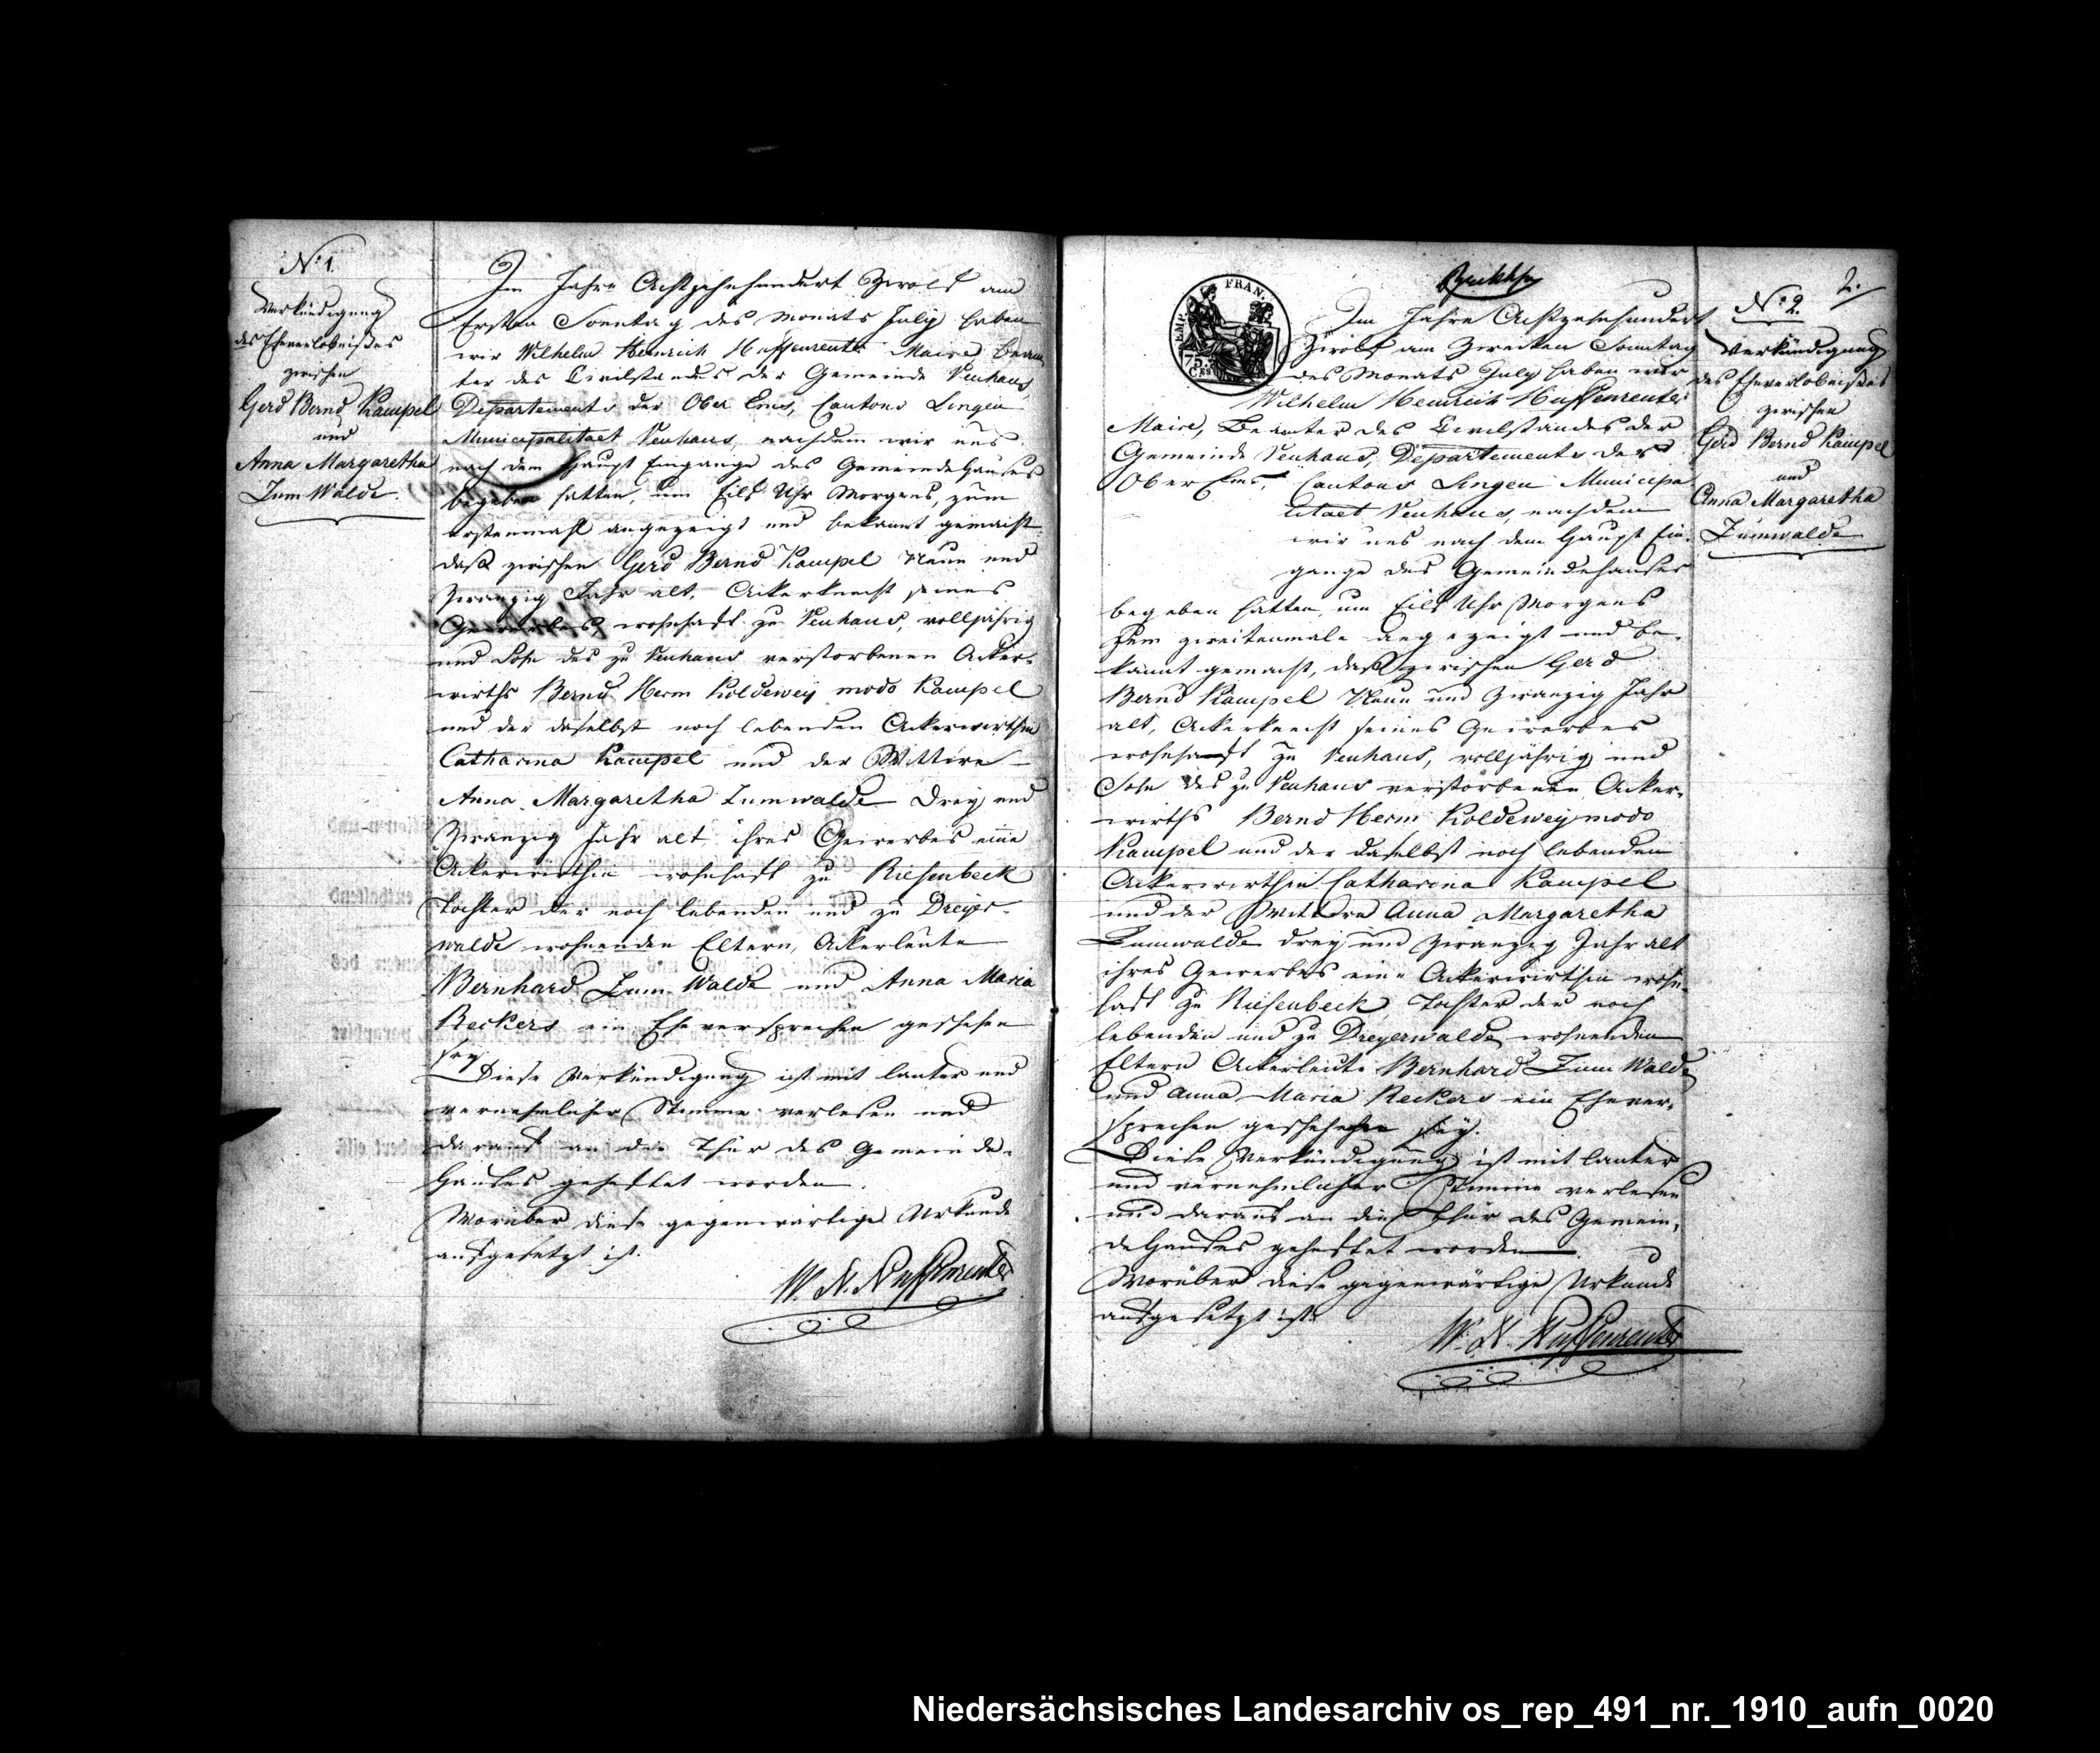 N.º 1.
Verkündigung
des Eheverlöbnißes
zwischen
Gerd Bernd Kampel
und
Anna Margaretha
Zum Walde.
Im Jahre Achtzehnhundert Zwölf am
Ersten Sonntag des Monats July haben
wir Wilhelm Heinrich Maire Beam
ter des Civilstandes der Gemeinde Neuhaus,
Departements der Ober Ems, Cantons Lingen
Municipalitaet Neuhaus, nachdem wir uns
nach dem Haupt Eingange des Gemeindehauses
begeben hatten, um Eilf Uhr Morgens, zum
erstenmahl angezeigt und bekannt gemacht
daß zwischen Gerd Bernd Kampel Neun und
Zwanzig Jahr alt, Ackerknecht seines
Gewerbes, wohnhaft zu Neuhaus, volljährig
und Sohn des zu Neuhaus verstorbenen Acker-
wirths Bernd Herm Koldewey modo Kampel
und der daselbst noch lebenden Ackerwirthin
Catharina Kampel und der Wittwe
Anna Margaretha Zumwalde drey und
Zwanzig Jahr alt, ihres Gewerbes eine
Ackerwirthin wohnhaft zu Riesenbeck
Tochter der noch lebenden und zu Dreyer-
walde wohnenden Eltern, Ackerleute
Bernhard Zum Walde und Anna Maria
Reckers ein Eheversprechen geschehen
sey.
Diese Verkündigung ist mit lauter und
vernehmlicher Stimme verlesen und
darauf an die Thür des Gemeinde-
Hauses geheftet worden.
Worüber diese gegenwärtige Urkunde
aufgesetzt ist.
W. H.
2.
TIMB. FRAN.
75.
Ces
Im Jahre Achtzehnhundert
Zwölf am Zweiten Sonntag
des Monats July haben wir
Wilhelm Heinrich
Maire, Beamter des Civilstandes der
Gemeinde Neuhaus, Departements der
Ober Ems, Cantons Lingen Municipa
litaet Neuhaus, nachdem
wir uns nach dem Haupt Ein-
gange des Gemeindehauses
begeben hatten, um Eilf Uhr Morgens
zum zweitenmale angezeigt und be-
kannt gemacht, daß zwischen Gerd
Bernd Kampel Neun und Zwanzig Jahr
alt, Ackerknecht seines Gewerbes
wohnhaft zu Neuhaus, volljährig und
Sohn des zu Neuhaus verstorbenen Acker-
wirths Bernd Herm Koldewey modo
Kampel und der daselbst noch lebenden
Ackerwirthin Catharina Kampel
und der Wittwe Anna Margaretha
Zumwalde drey und Zwanzig Jahr alt
ihres Gewerbes eine Ackerwirthin wohn-
haft zu Riesenbeck, Tochter der noch
lebenden und zu Dreyerwalde wohnenden
Eltern Ackerleute Bernhard Zum Walde
und Anna Maria Reckers ein Ehever-
sprechen geschehen sey.
Diese Verkündigung ist mit lauter
und vernehmlicher Stimme verlesen
und darauf an die Thür des Gemein-
dehauses geheftet worden.
Worüber diese gegenwärtige Urkunde
aufgesetzt ist.
W. H.
N.º 2.
Verkündigung
des Eheverlöbnißes
zwischen
Gerd Bernd Kampel
und
Anna Margaretha
Zumwalde
Niedersächsisches Landesarchiv os_rep_491_nr._1910_aufn_0020